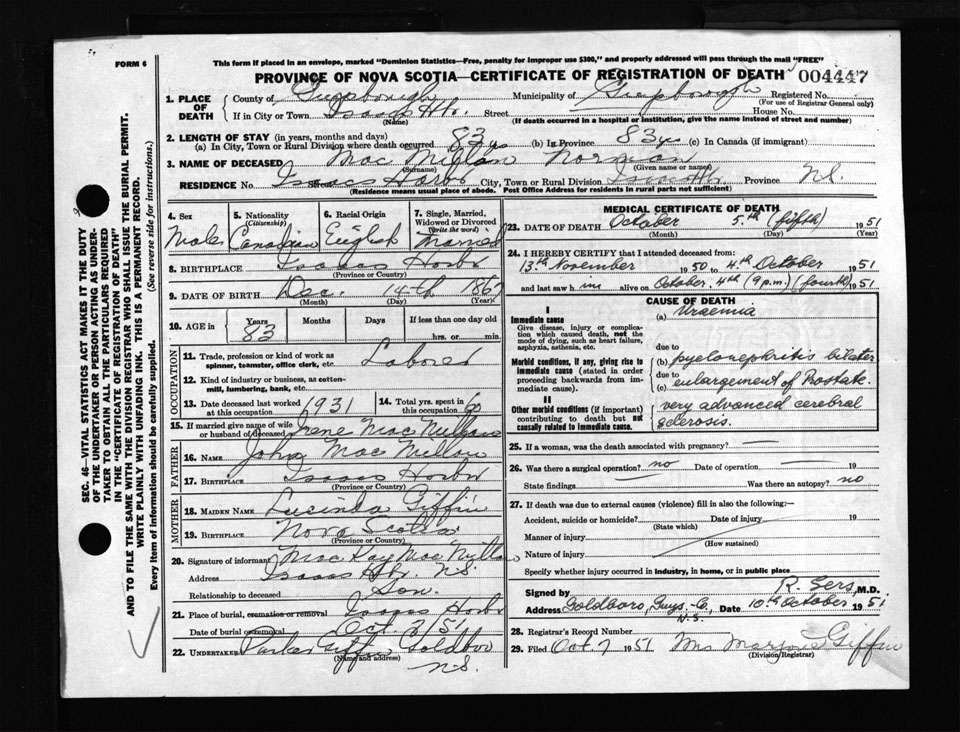 This form if placed in an envelope, marked "Dominion Statistics—Free, penalty for improper use $300," and properly addressed will pass through the mail "FREE"
FORM 6
PROVINCE OF NOVA SCOTIA—CERTIFICATE OF REGISTRATION OF DEATH 004447
1. PLACE OF DEATH
County of Guysborough Municipality of Guysborough Registered No.
(For use of Registrar General only)
If in City or Town Isaacs Hbr. Street House No.
(Name) (If death occurred in a hospital or institution, give the name instead of street and number)
2. LENGTH OF STAY (in years, months and days)
(a) In City, Town or Rural Division where death occurred 83 yrs (b) In Province 83 yrs (c) In Canada (if immigrant)
3. NAME OF DECEASED Mac Millan Norman
(Surname) (Given name or names)
RESIDENCE No. Street Isaacs Harbr City, Town or Rural Division Isaacs Hbr. Province N.S.
(Residence means usual place of abode. Post Office Address for residents in rural parts not sufficient)
4. Sex Male
5. Nationality (Citizenship) Canadian
6. Racial Origin English
7. Single, Married, Widowed or Divorced (Write the word) Married
8. BIRTHPLACE Isaacs Harbr
(Province or Country)
9. DATE OF BIRTH Dec. 14th 1867
(Month) (Day) (Year)
10. AGE in Years Months Days If less than one day old
83 hrs. or min.
OCCUPATION
11. Trade, profession or kind of work as spinner, teamster, office clerk, etc. Laborer
12. Kind of industry or business, as cotton-mill, lumbering, bank, etc.
13. Date deceased last worked at this occupation 1931
14. Total yrs. spent in this occupation 60
15. If married give name of wife or husband of deceased Irene Mac Millan
FATHER
16. Name John Mac Millan
17. Birthplace Isaacs Harbr
(Province or Country)
MOTHER
18. Maiden Name Lucinda Giffin
19. Birthplace Nova Scotia
(Province or Country)
20. Signature of informant Mac Kay Mac Millan
Address Isaacs Hbr. N.S.
Relationship to deceased Son.
21. Place of burial, cremation or removal Isaacs Harbr
Date of burial or removal Oct 7/51
22. UNDERTAKER Parker Giffin Goldboro
(Name and address) N.S.
MEDICAL CERTIFICATE OF DEATH
23. DATE OF DEATH October 5.th (fifth) 1951
(Month) (Day) (Year)
24. I HEREBY CERTIFY that I attended deceased from:
13.th November 1950 to 4.th October 1951
and last saw him alive on October, 4th (9 p.m.) (fourth) 1951
CAUSE OF DEATH
I
Immediate cause
Give disease, injury or complication which caused death, not the mode of dying, such as heart failure, asphyxia, asthenia, etc.
(a) Uraemia
due to
Morbid conditions, if any, giving rise to immediate cause (stated in order proceeding backwards from immediate cause).
(b) pyelonephritis bilater
due to
(c) enlargement of Prostate.
II
Other morbid conditions (if important) contributing to death but not causally related to immediate cause.
very advanced cerebral
sclerosis.
25. If a woman, was the death associated with pregnancy? —
26. Was there a surgical operation? no Date of operation — 19
State findings Was there an autopsy? no
27. If death was due to external causes (violence) fill in also the following:—
Accident, suicide or homicide? Date of injury 19
(State which)
Manner of injury
(How sustained)
Nature of injury
Specify whether injury occurred in industry, in home, or in public place
Signed by R. Sers, M.D.
Address Goldboro, Guys. Co, N.S. Date 10th October 1951
28. Registrar's Record Number
29. Filed Oct 7 1951 Mrs Marjorie Giffin
(Division Registrar)
SEC. 46—VITAL STATISTICS ACT MAKES IT THE DUTY
OF THE UNDERTAKER OR PERSON ACTING AS UNDER-
TAKER TO OBTAIN ALL THE PARTICULARS REQUIRED
IN THE "CERTIFICATE OF REGISTRATION OF DEATH"
AND TO FILE THE SAME WITH THE DIVISION REGISTRAR WHO SHALL ISSUE THE BURIAL PERMIT.
WRITE PLAINLY WITH UNFADING INK. THIS IS A PERMANENT RECORD.
Every item of information should be carefully supplied. (See reverse side for instructions.)